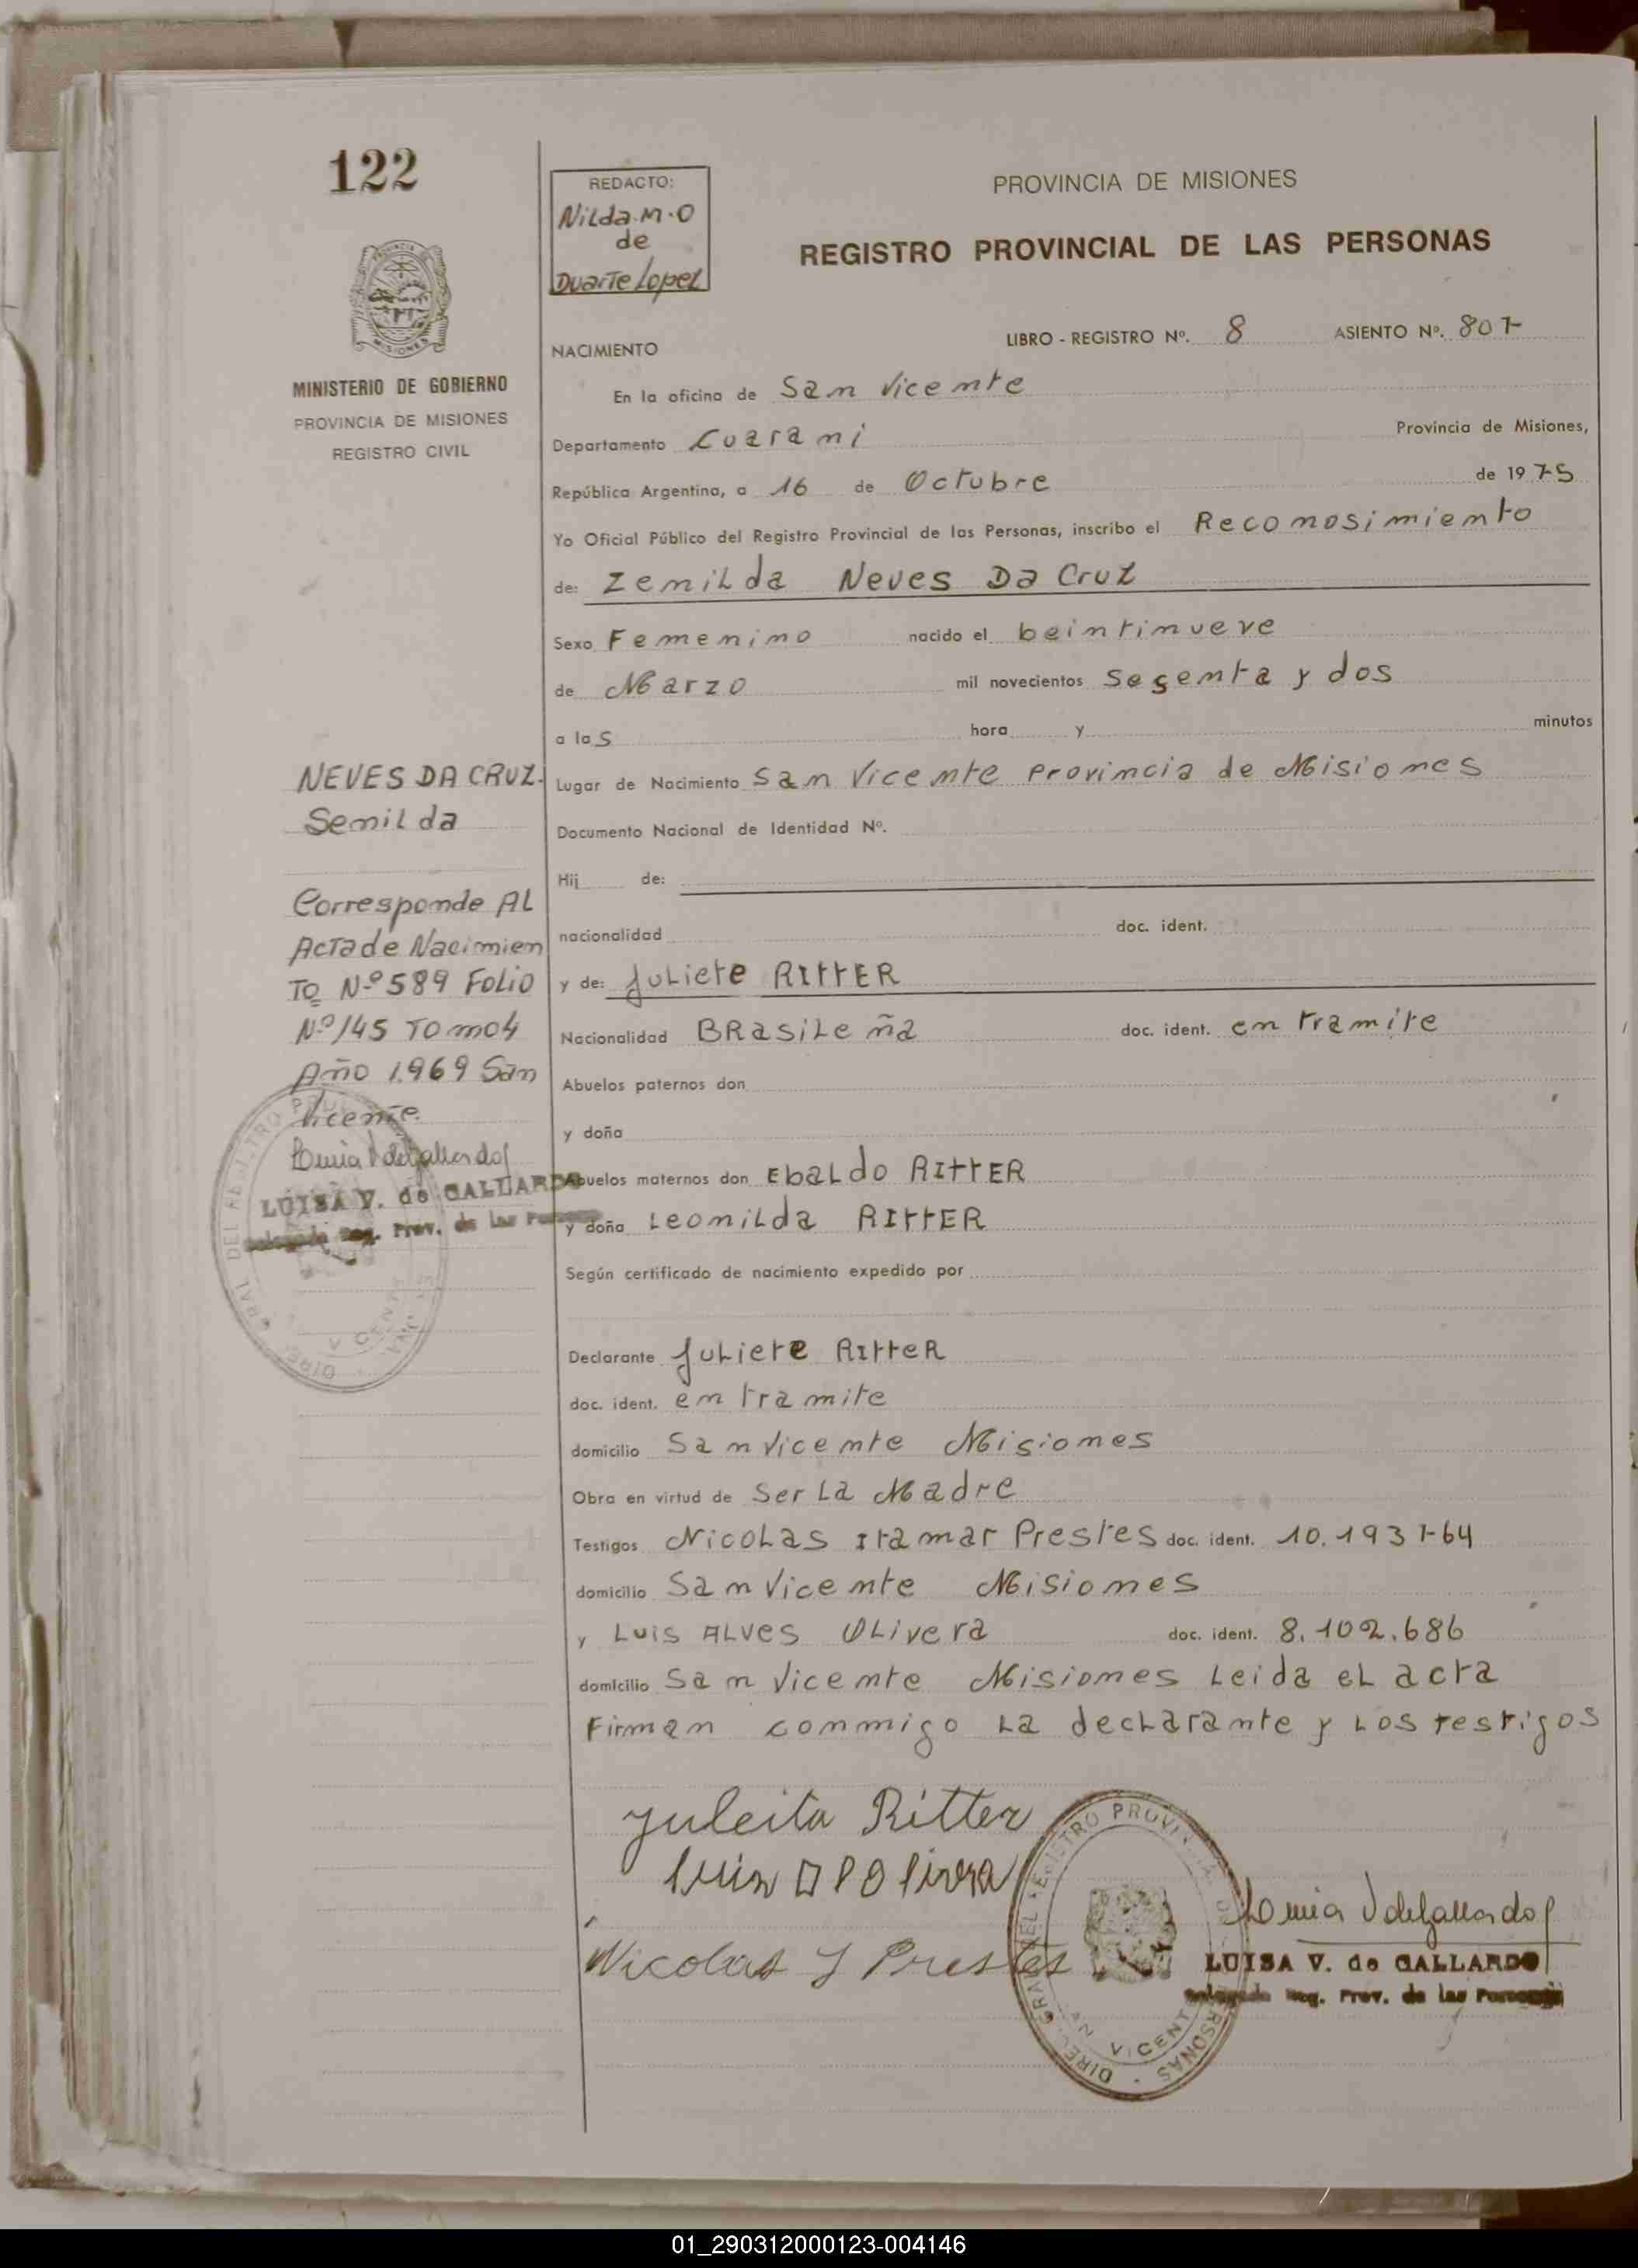 122
MINISTERIO DE GOBIERNO
PROVINCIA DE MISIONES
REGISTRO CIVIL
REDACTO:
Nilda.M.O
de
Duarte Lopez
PROVINCIA DE MISIONES
REGISTRO PROVINCIAL DE LAS PERSONAS
NACIMIENTO
LIBRO - REGISTRO Nº. 8 ASIENTO Nº. 807
En la oficina de San Vicente
Departamento Cuarani Provincia de Misiones,
República Argentina, a 16 de Octubre de 1975
Yo Oficial Público del Registro Provincial de las Personas, inscribo el Reconosimiento
de: Zemilda Neves Da Cruz
Sexo Femenino nacido el beintinueve
de Marzo mil novecientos sesenta y dos
a las hora y minutos
Lugar de Nacimiento San Vicente Provincia de Misiones
Documento Nacional de Identidad Nº.
Hij de:
nacionalidad doc. ident.
y de: Juliete RITTER
Nacionalidad BRasileña doc. ident. en tramite
Abuelos paternos don
y doña
Abuelos maternos don Ebaldo RITTER
y doña Leonilda RITTER
Según certificado de nacimiento expedido por
Declarante Juliete RITTeR
doc. ident. en tramite
domicilio San Vicente Misiones
Obra en virtud de Ser La Madre
Testigos Nicolas Itamar Prestes doc. ident. 10.193764
domicilio San Vicente Misiones
y Luis Alves Olivera doc. ident. 8.102.686
domicilio San Vicente Misiones Leida el acta
Firman conmigo la declarante y los testigos
NEVES DA CRUZ.
Semilda
Corresponde AL
Acta de Nacimien
To Nº 589 Folio
Nº 145 Tomo 4
Año 1.969 San
Vicente.
LUISA V. de GALLARDO
Delegada Reg. Prov. de las Personas
Juleita Ritter
Nicolas I Prestes
LUISA V. de GALLARDO
Delegada Reg. Prov. de las Personas
01_290312000123-004146